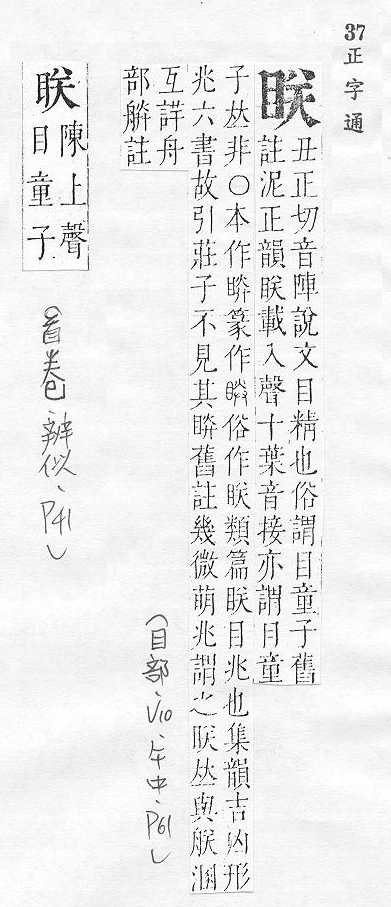 37正字通
眹
丑正切音陣說文目精也俗謂目童子舊
註泥正韻眹載入聲十葉音接亦謂目童
子𠀤非○本作䀼篆作䀼俗作眹類篇眹目兆也集韻吉凶形
兆六書故引莊子不見其䀼舊註幾微萌兆謂之眹𠀤與朕溷
互詳舟
部䑣註
(目部、V10、午中、P61)
眹
陳上聲
目童子
(首卷辨似、P41)